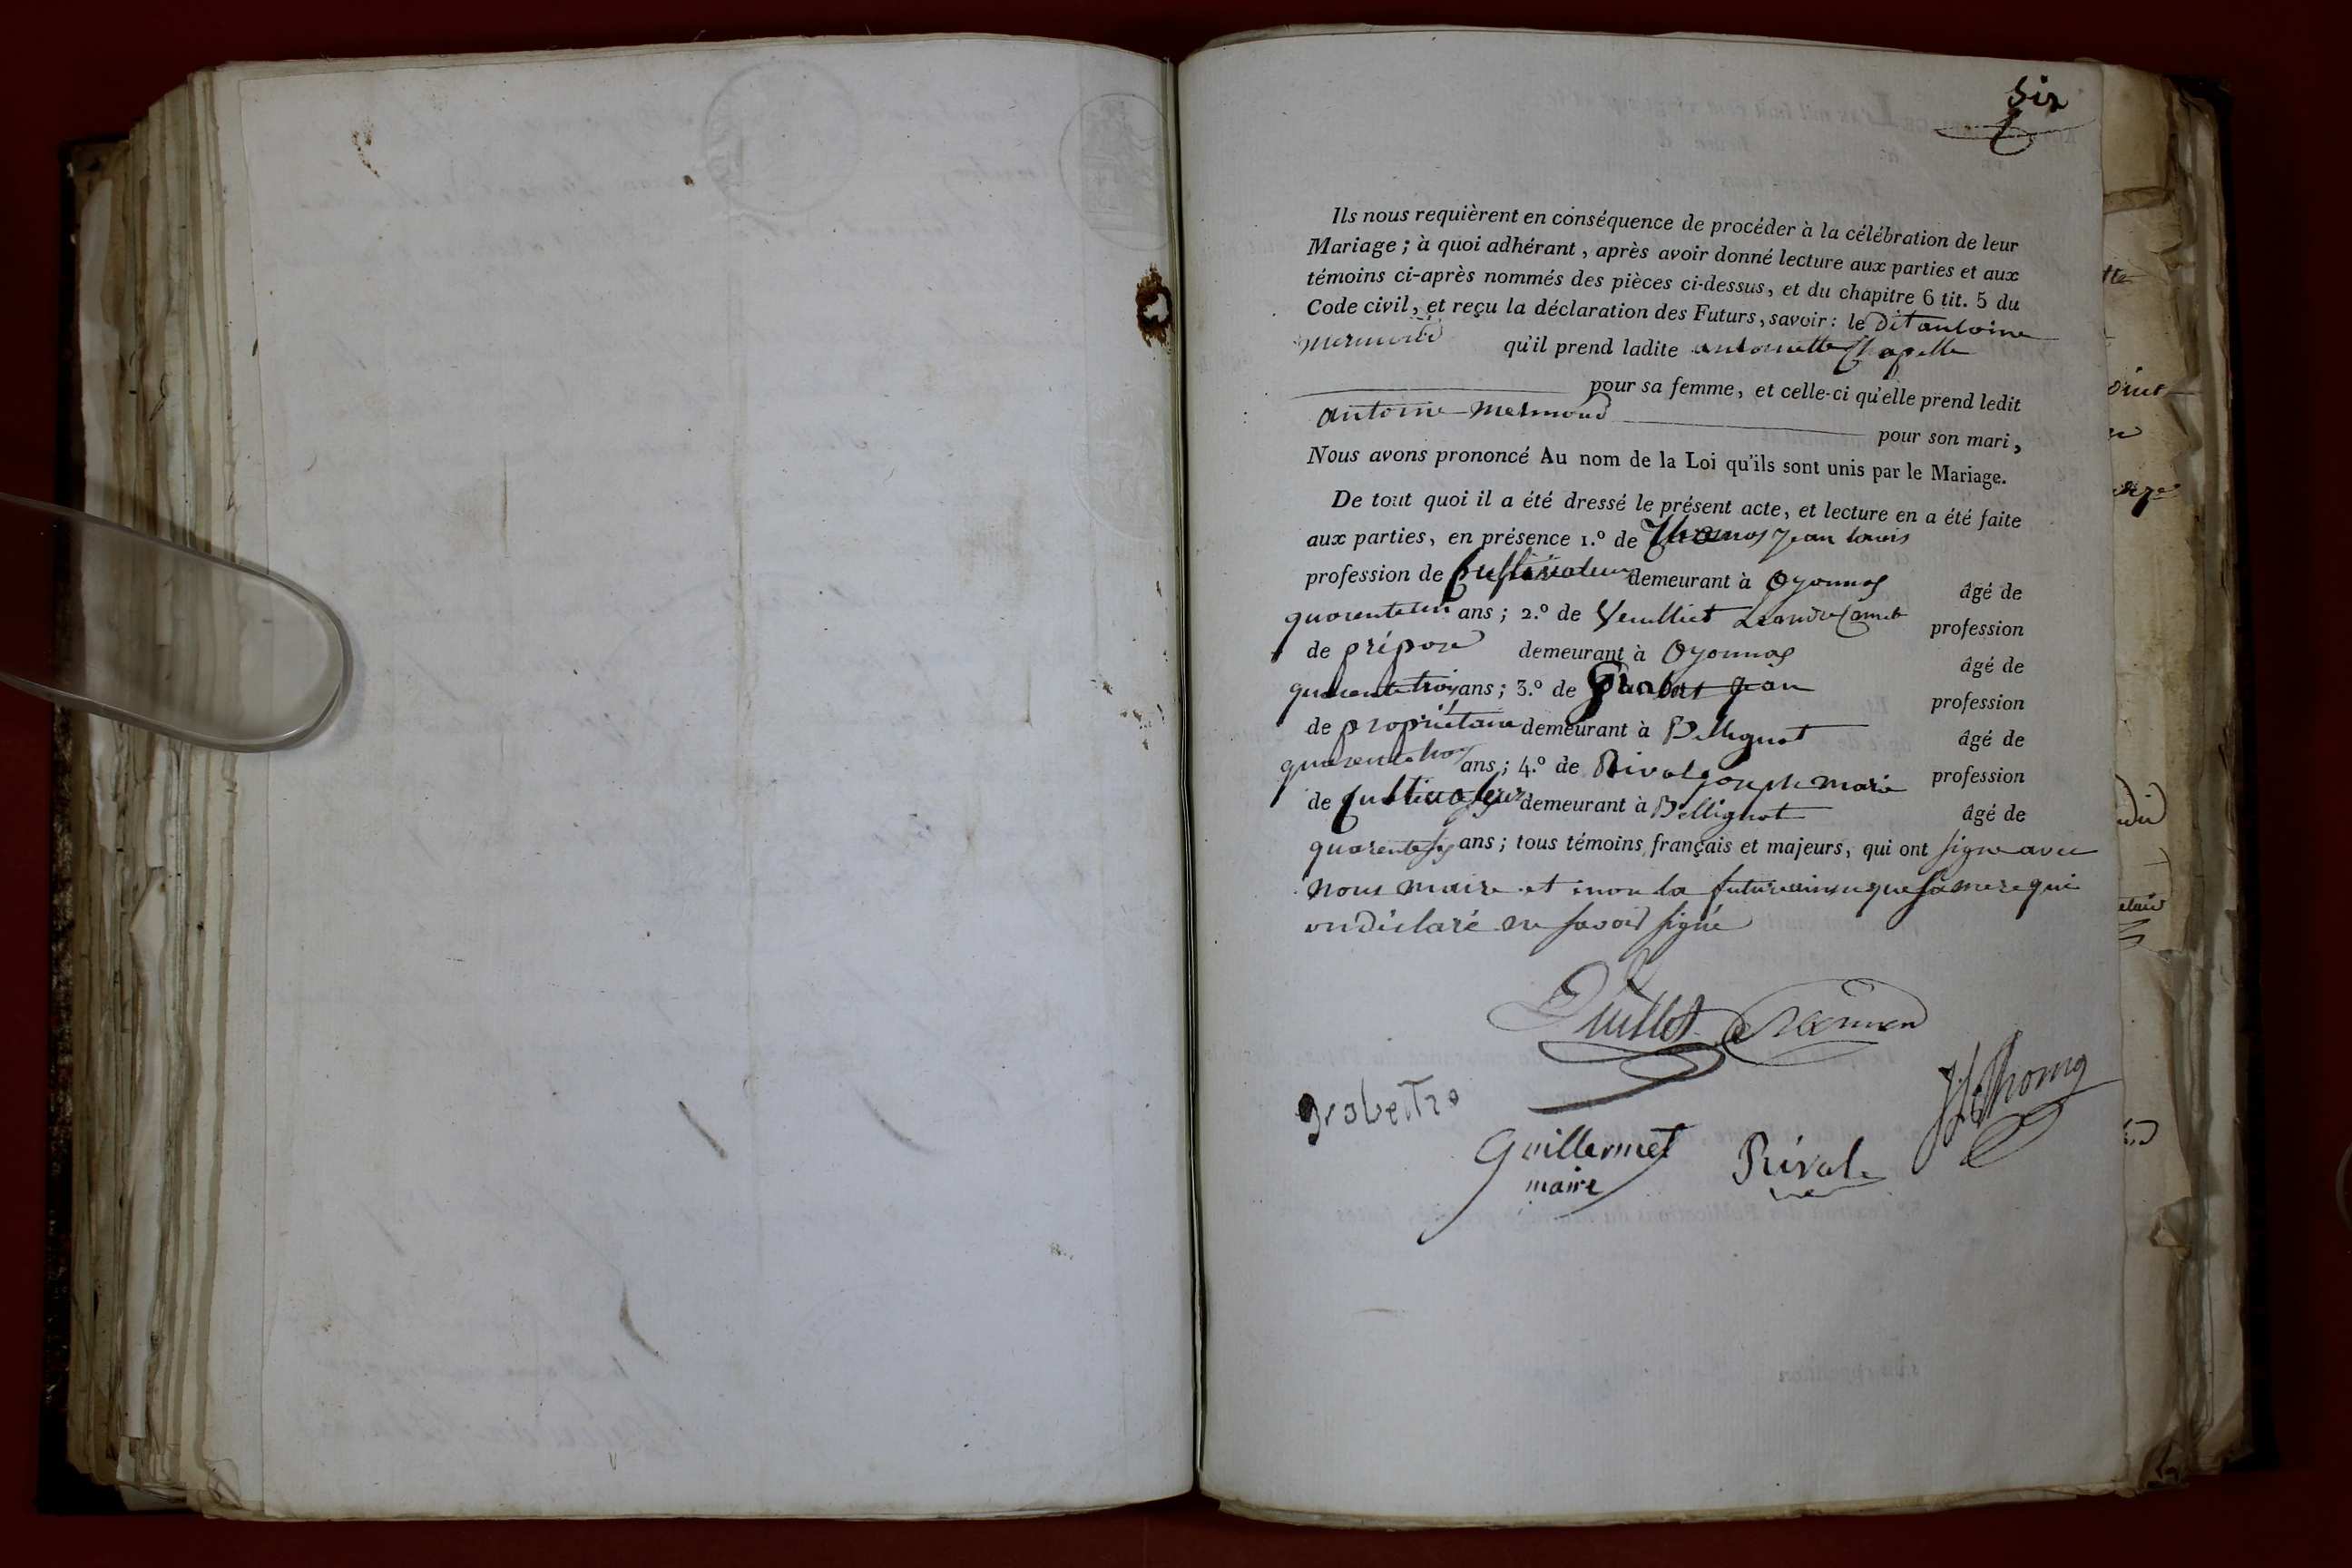 Six
Ils nous requièrent en conséquence de procéder à la célébration de leur
Mariage ; à quoi adhérant, après avoir donné lecture aux parties et aux
témoins ci-après nommés des pièces ci-dessus, et du chapitre 6 tit. 5 du
Code civil, et reçu la déclaration des Futurs, savoir : le dit antoine
mermond qu'il prend ladite antoinette Chapelle
pour sa femme, et celle-ci qu'elle prend ledit
antoine mermond pour son mari,
Nous avons prononcé Au nom de la Loi qu'ils sont unis par le Mariage.
De tout quoi il a été dressé le présent acte, et lecture en a été faite
aux parties, en présence 1.º de Thomas Jean louis
profession de Cultivateur demeurant à Oyonnas âgé de
quarente ans ; 2.º de profession
de préposé demeurant à Oyonnas âgé de
quarente trois ans ; 3.º de Jean profession
de propriétaire demeurant à Bellignat âgé de
quarente trois ans ; 4.º de Rival joseph marie profession
de Cultivateur demeurant à Bellignat âgé de
quarente ans ; tous témoins français et majeurs, qui ont signe avec
nous maire et inon la future ainsi que sa mere qui
on déclaré ne savoir signé
Grobert
Guillermet
maire
Rival
JL Thomas